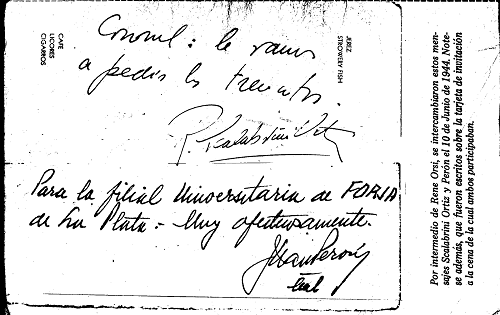 CAFE
LICORES
CIGARROS
JEREZ
Coronel: le vamos
a pedir los trencitos.
R. Scalabrini Ortiz
Para la filial Universitaria de FORJA
de La Plata - Muy afectuosamente.
Juan Perón
Por intermedio de Rene Orsi, se intercambiaron estos men-
sajes Scalabrini Ortiz y Perón el 10 de Junio de 1944. Note-
se además, que fueron escritos sobre la tarjeta de invitación
a la cena de la cual ambos participaban.